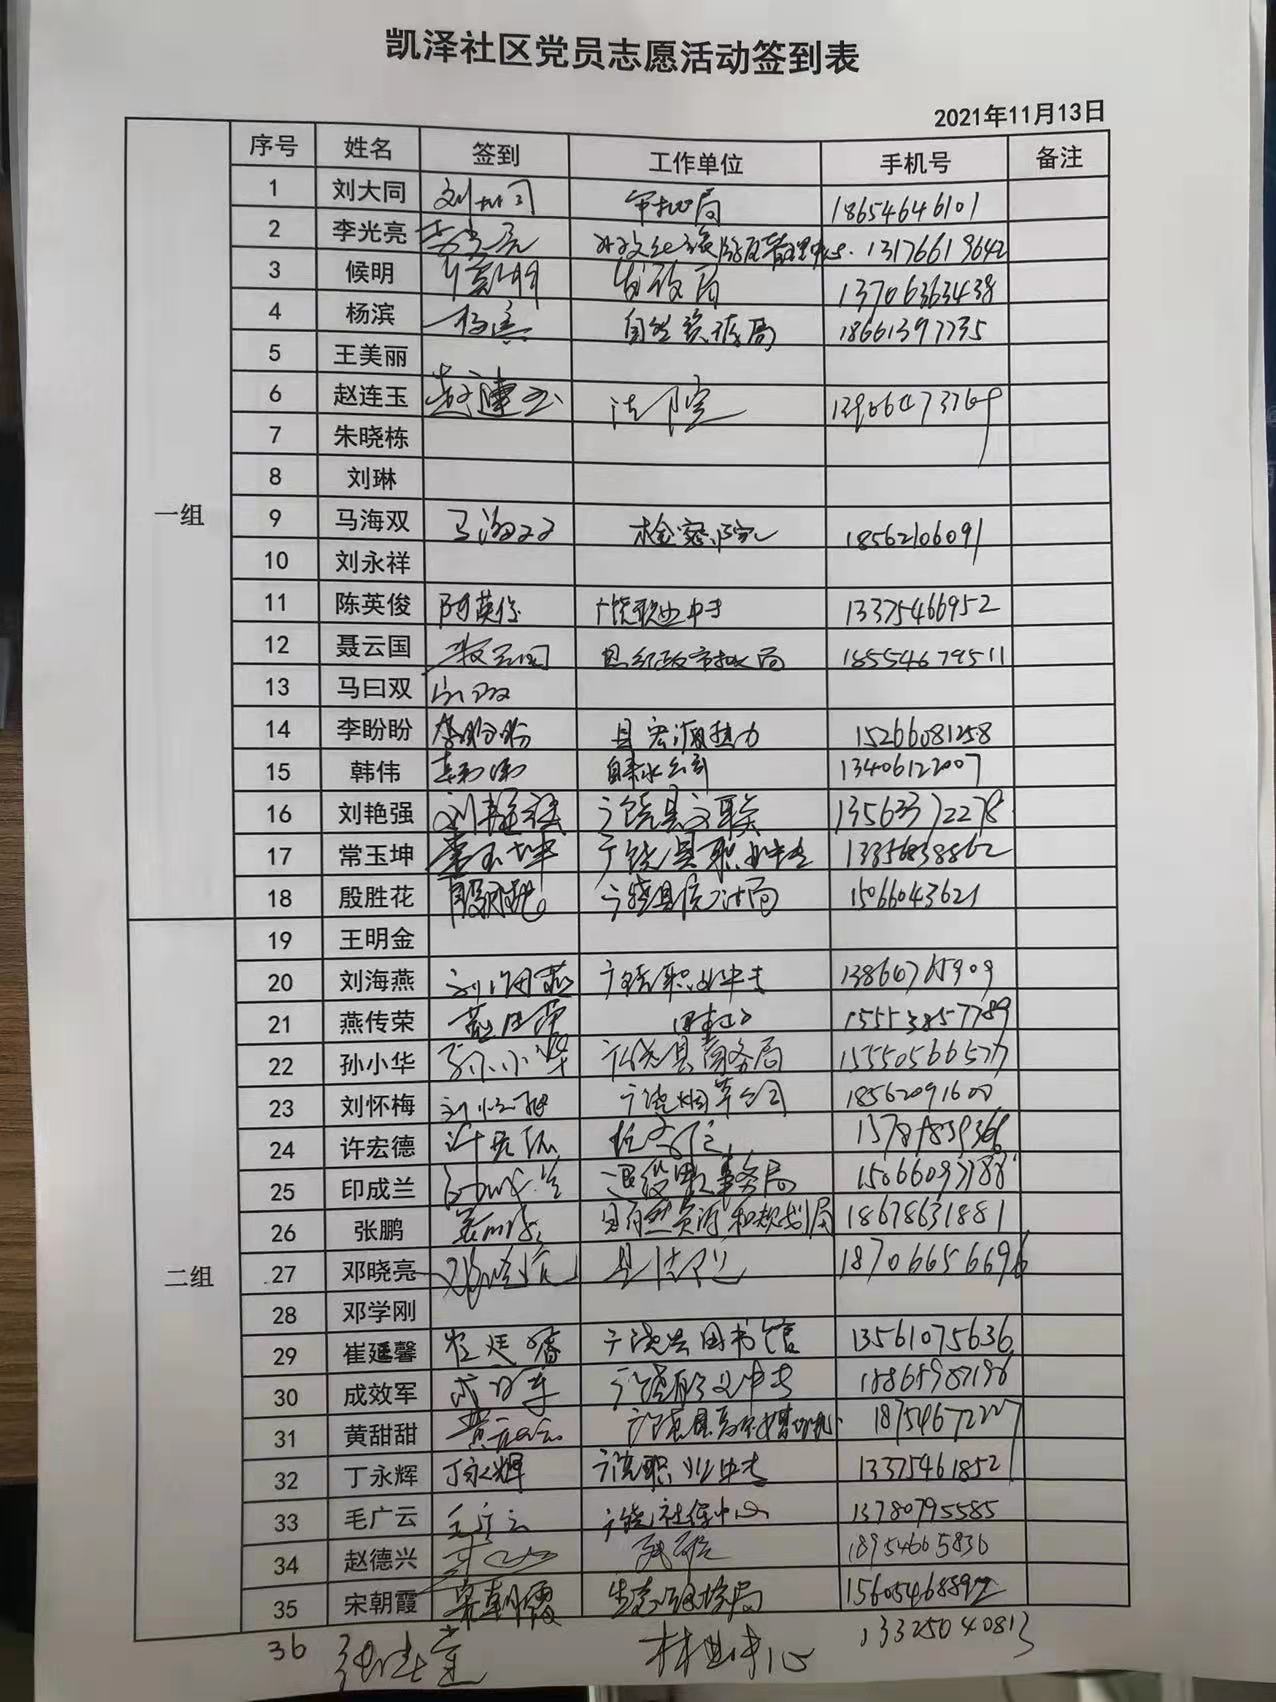 凯泽社区党员志愿活动签到表
2021年11月13日
序号 姓名 签到 工作单位 手机号 备注
一组
1 刘大同 刘大同 审批局 18654646101
2 李光亮 李光亮 13176619642
3 候明 侯明 发改局 13706363438
4 杨滨 杨滨 自然资源局 18661397735
5 王美丽
6 赵连玉 赵连玉 法院 13906473769
7 朱晓栋
8 刘琳
9 马海双 马海双 检察院 18562106091
10 刘永祥
11 陈英俊 陈英俊 广饶职业中专 13375466952
12 聂云国 聂云国 18554679511
13 马曰双
14 李盼盼 李盼盼 县宏源热力 15266081258
15 韩伟 韩伟 自来水公司 13406122007
16 刘艳强 刘艳强 广饶县文联 13563372278
17 常玉坤 常玉坤 广饶县职业中专 13356838862
18 殷胜花 殷胜花 广饶县统计局 15066043621
二组
19 王明金
20 刘海燕 刘海燕 广饶职业中专
21 燕传荣 15553857789
22 孙小华 孙小华 广饶县商务局 15550566577
23 刘怀梅 刘怀梅 广饶烟草公司
24 许宏德 许宏德
25 印成兰 印成兰 退役军人事务局
26 张鹏 张鹏 县自然资源和规划局 18678631881
27 邓晓亮 邓晓亮 县法院 18706656696
28 邓学刚
29 崔延馨 崔延馨 广饶县图书馆 13561075636
30 成效军 成效军 广饶职业中专
31 黄甜甜 黄甜甜 18754672227
32 丁永辉 丁永辉 广饶职业中专 13375461852
33 毛广云 毛广云 广饶社保中心 13780795585
34 赵德兴 18954665836
35 宋朝霞 宋朝霞 生态环境局 15605468892
36 林业中心 13325040813